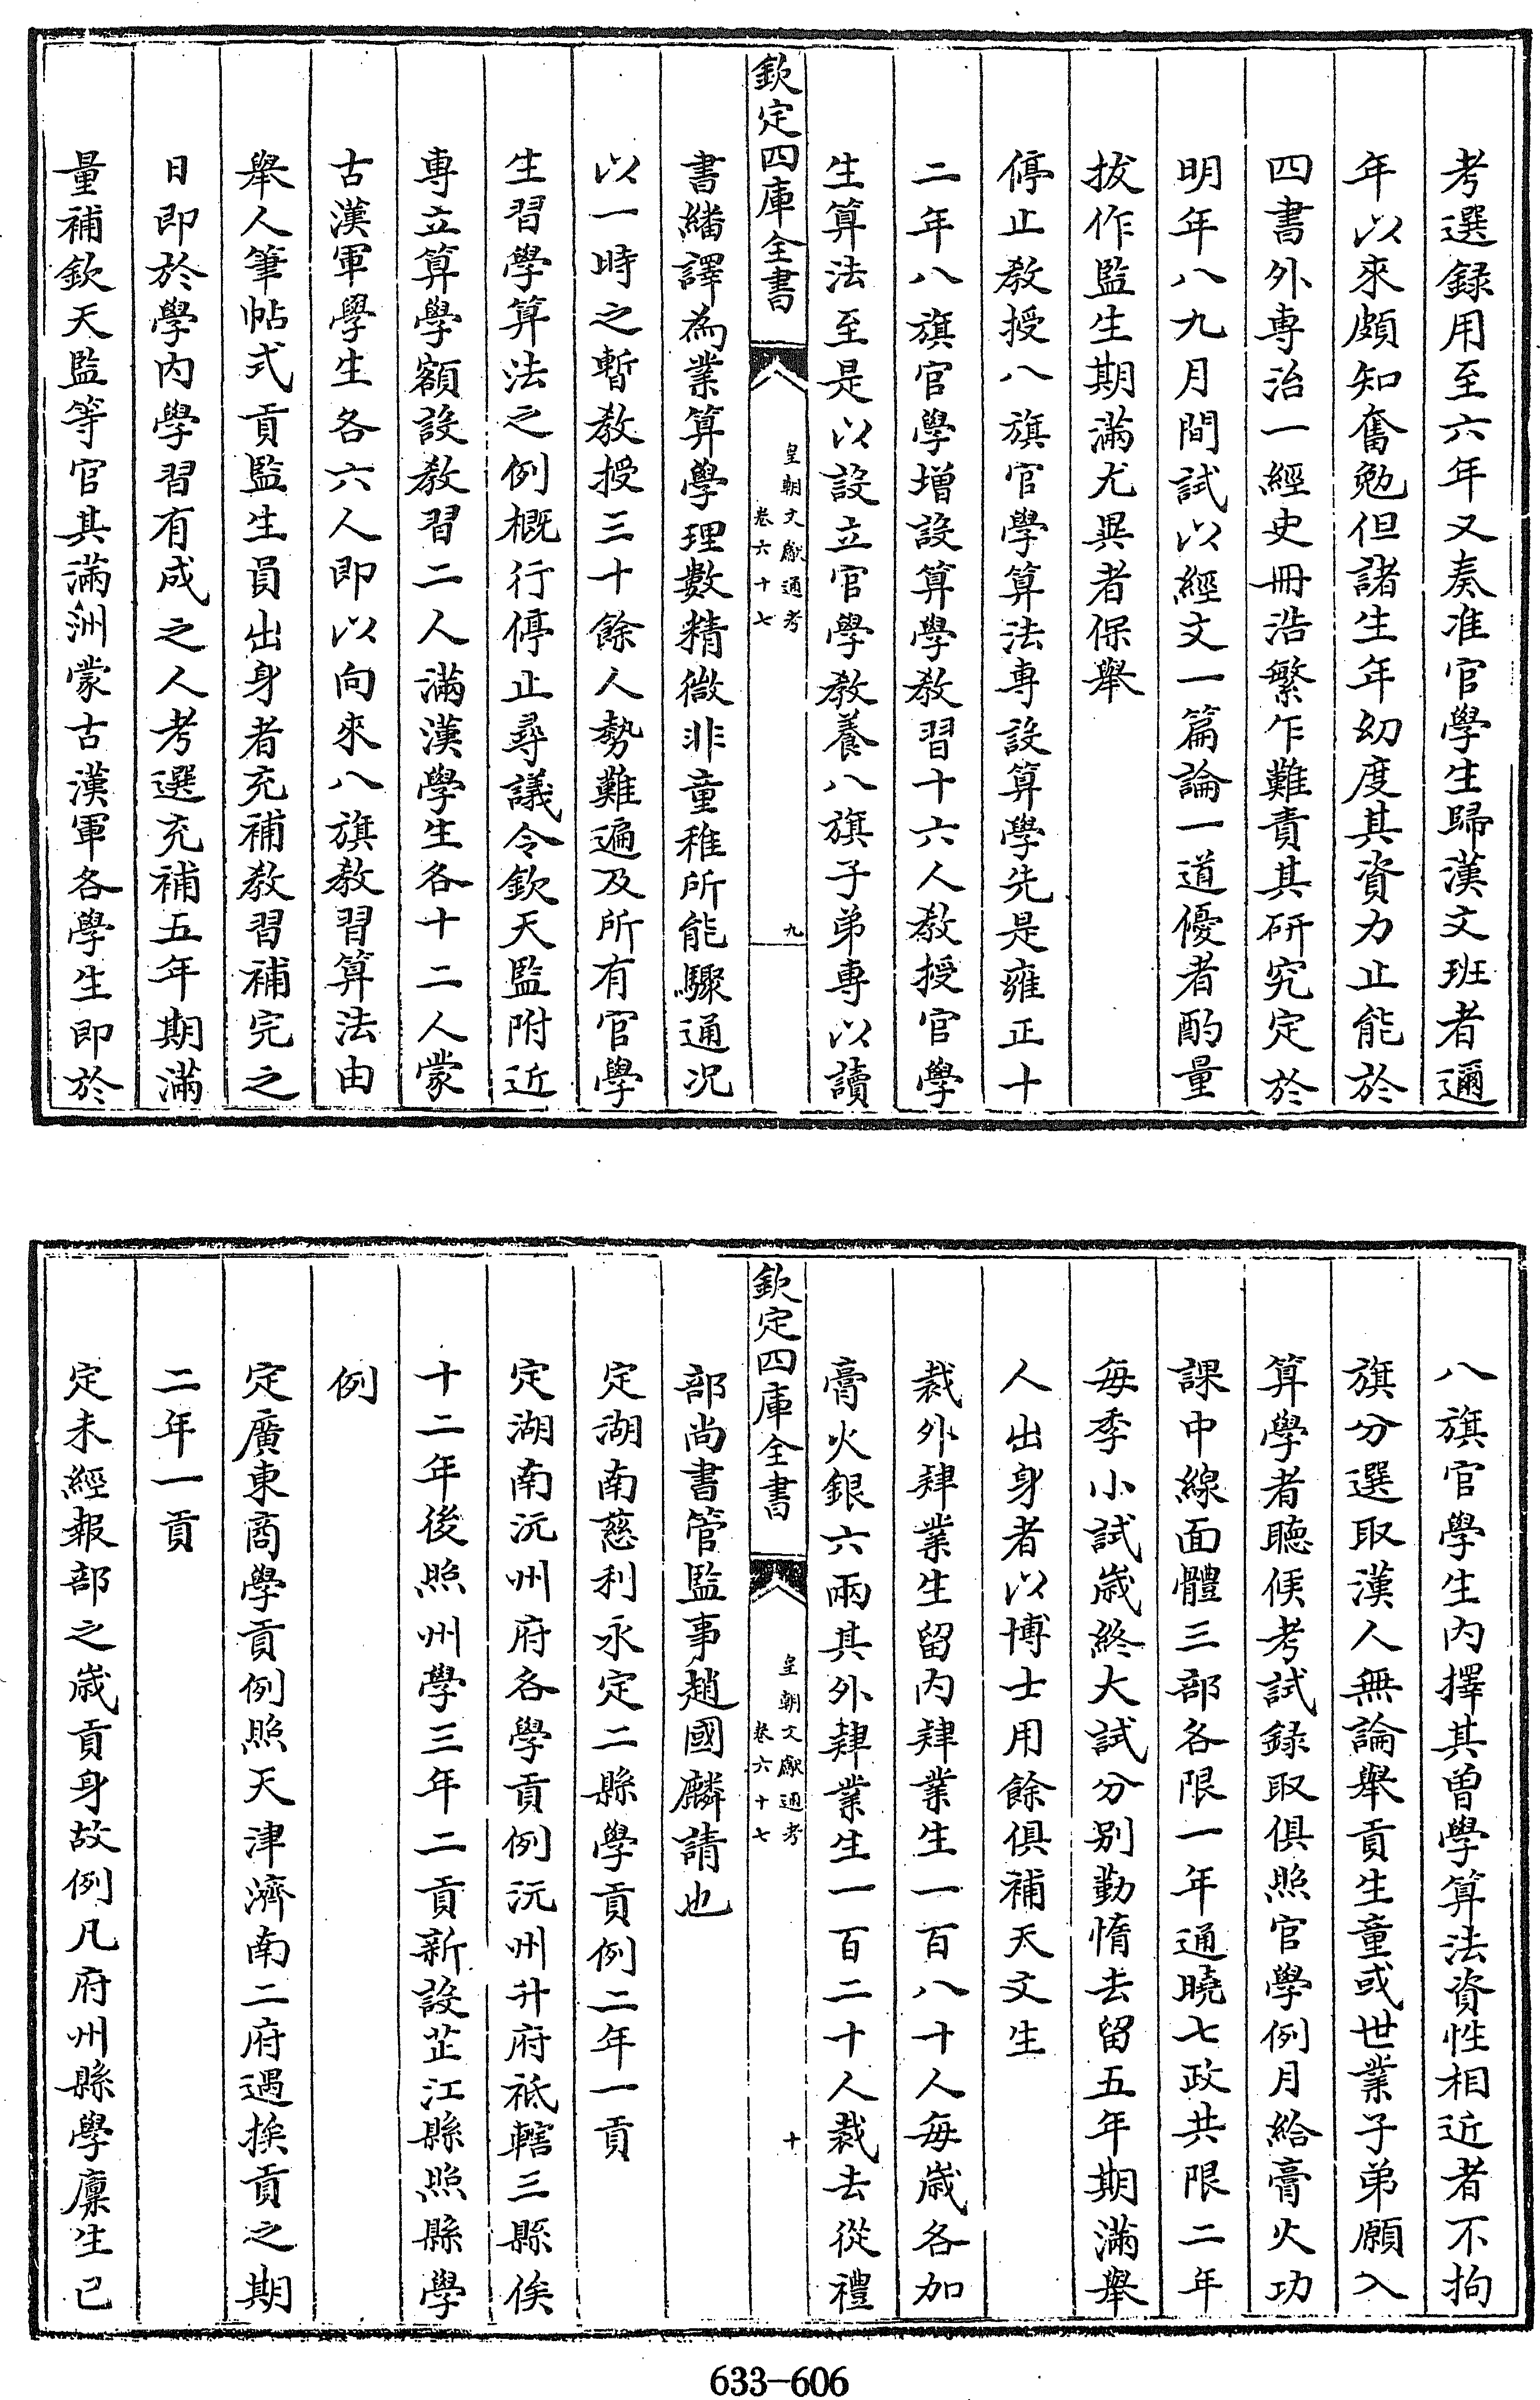 考選録用至六年又奏准官學生歸漢文班者邇
年以來頗知奮勉但諸生年幼度其資力止能於
四書外専治一經史冊浩繁乍難責其研究定於
明年八九月間試以經文一篇論一道優者酌量
拔作監生期滿尤異者保舉
停止教授八旗官學算法専設算學先是雍正十
二年八旗官學增設算學教習十六人教授官學
生算法至是以設立官學教養八旗子弟専以讀
欽定四庫全書
皇朝文獻通考
卷六十七
九
書繙譯為業算學理數精微非童稚所能驟通况
以一時之暫教授三十餘人勢難遍及所有官學
生習學算法之例概行停止尋議令欽天監附近
専立算學額設教習二人滿漢學生各十二人蒙
古漢軍學生各六人即以向來八旗教習算法由
舉人筆帖式貢監生員出身者充補教習補完之
日即於學内學習有成之人考選充補五年期滿
量補欽天監等官其滿洲蒙古漢軍各學生即於
八旗官學生内擇其曽學算法資性相近者不拘
旗分選取漢人無論舉貢生童或世業子弟願入
算學者聽候考試録取俱照官學例月給膏火功
課中線面體三部各限一年通曉七政共限二年
每季小試歲終大試分别勤惰去留五年期滿舉
人出身者以博士用餘俱補天文生
裁外肄業生留内肄業生一百八十人每歲各加
膏火銀六兩其外肄業生一百二十人裁去從禮
欽定四庫全書
皇朝文獻通考
卷六十七
十
部尚書管監事趙國麟請也
定湖南慈利永定二縣學貢例二年一貢
定湖南沅州府各學貢例沅州升府祗轄三縣俟
十二年後照州學三年二貢新設芷江縣照縣學
例
定廣東商學貢例照天津濟南二府遇挨貢之期
二年一貢
定未經報部之歲貢身故例凡府州縣學廩生已
633-606